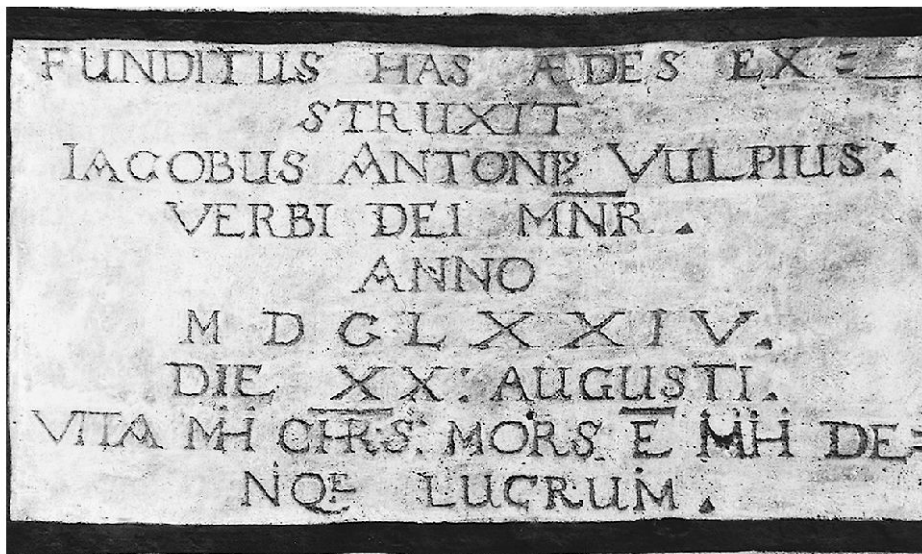 FUNDITUS HAS ÆDES EX=
STRUXIT
IACOBUS ANTONIꝰ VULPIUS:
VERBI DEI MNR.
ANNO
MDCLXXIV.
DIE XX: AUGUSTI.
VITA MH CHRS: MORS Ē MH DE-
NQE LUCRUM.